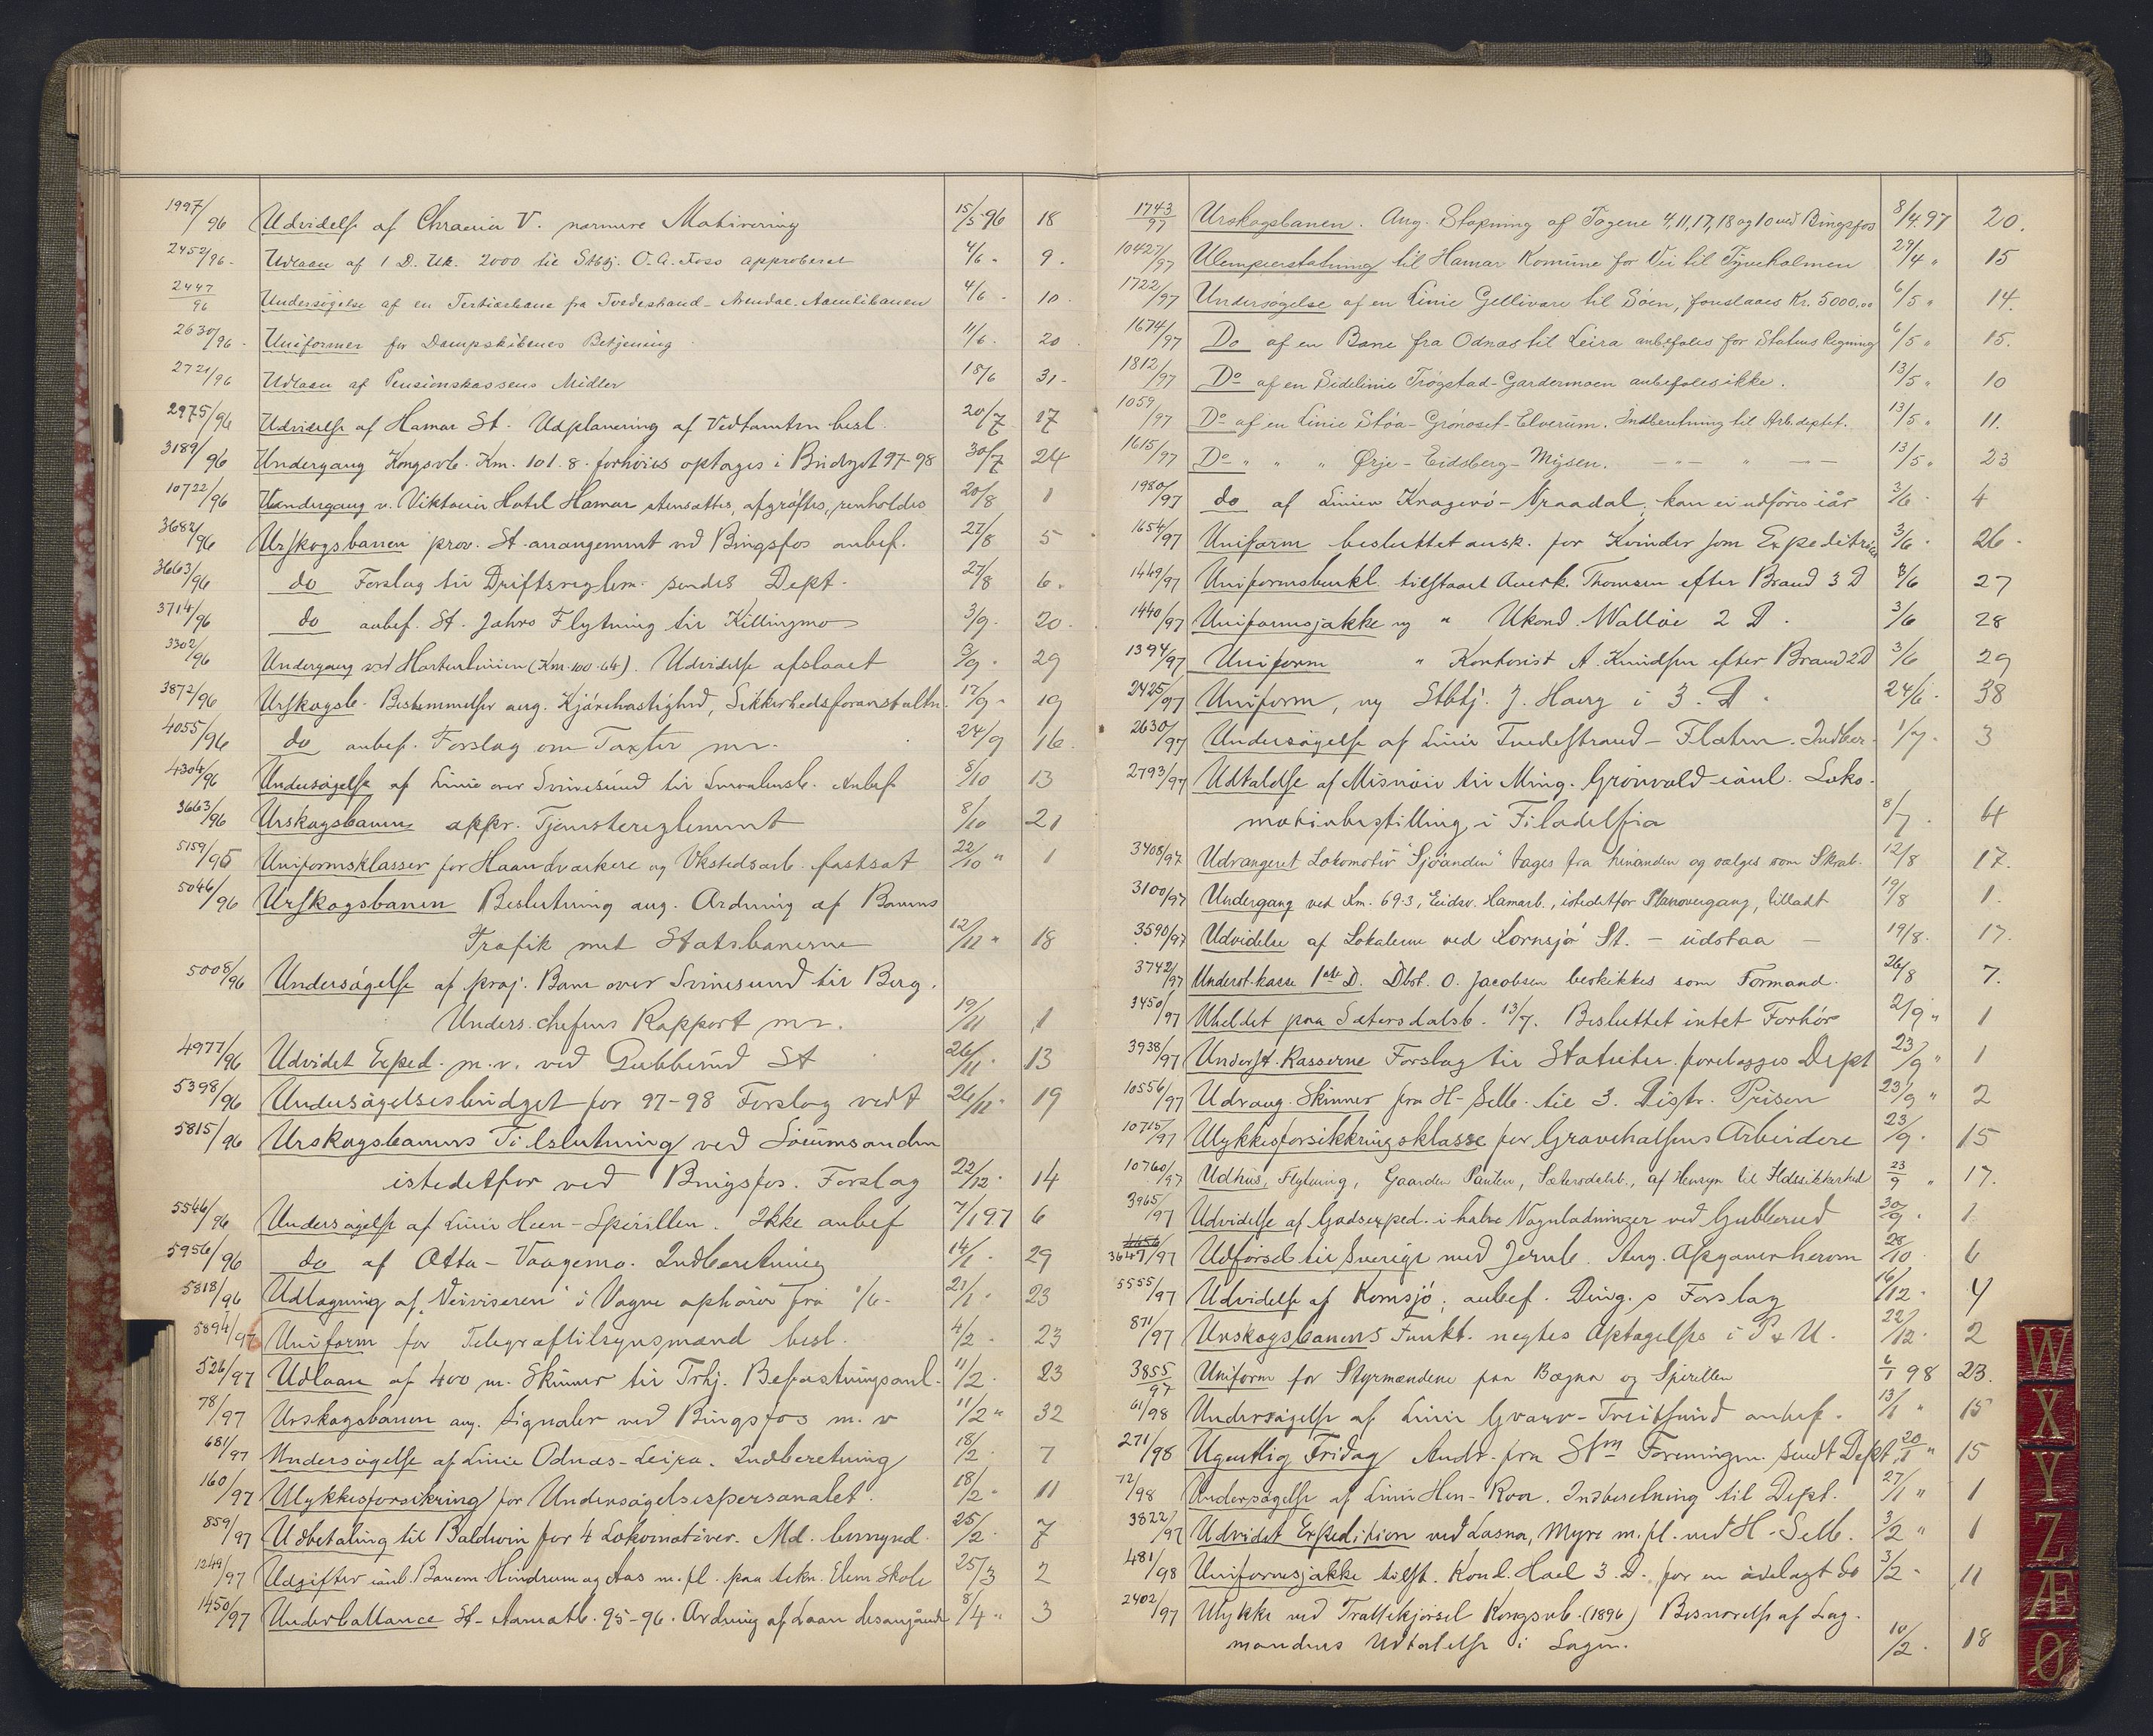 1997/96 Udvidelse af Chrania V. nærmere Motivering 15/5 96 18
2452/96 Udlaan af 1 D. Uk. 2000 til Stbtj. O. A. Foss approberet 4/6 - 9.
2447/96 Undersøgelse af en Tertiærbane fra Tvedestrand - Arendal-Aamlibanen 4/6 - 10.
2630/96 - Uniformer for Dampskibenes Betjening 11/6 - 20
2721/96 Udlaan af Pensionskassens Midler 18/6 31-
2975/96 Udvidelse af Hamar St. Udplanering af Vedtomten besl. 20/7 17
3189/96 Undergang Kongsvb. Km. 101.8. forhøies optages i Budget 97-98 30/7 24
10722/96 Undergang v. Viktoria Hotel Hamar stensættes, afgrøftes, renholdes 20/8 1
3682/96 Urskogsbanen prov. St. arrangement ved Bingsfos anbef. 27/8 5
3663/96 do Forslag til Driftsreglem. sendes Dept. 27/8 6.
3714/96 do anbef. St. Jahrs Flytning til Killingmo 3/9. 20.
3302/96 Undergang ved Hovedlinien (Km. 100.64). Udvidelse afslaaet 3/9. 29
3872/96 Urskogsb. Bestemmelser ang. Kjørehastighed, Sikkerhedsforanstaltn. 17/9 - 19
4055/96 do anbef. Forslag om Taxter m.v. 24/9 16.
4304/96 Undersøgelse af Linie over Svinesund til Smaalensb. Anbef. 8/10 13
3663/96 Urskogsbanens appr. Tjenstereglement 8/10 21
5159/95 Uniformsklasser for Haandværkere og Vkstedsarb. fastsat 22/10 " 1
5046/96 Urskogsbanen Beslutning ang. Ordning af Banens
Trafik med Statsbanerne 12/11 " 18
5008/96 Undersøgelse af proj. Bane over Svinesund til Berg.
Unders. chefens Rapport m.v. 19/11 1
4977/96 Udvidet Exped. m.v. ved Gubberud St 26/11. 13
5398/96 Undersøgelsesbudget for 97-98 Forslag vedt 26/11. 19
5815/96 Urskogsbanens Tilslutning ved Sørumsanden
istedetfor ved Bingsfos. Forslag 22/12. 14
5546/96 Undersøgelse af Linie Heen-Spirillen. Ikke anbef 7/1 97 6
5956/96 do af Otta-Vaagemo. Indberetning 14/1. 29
5818/96 Udlægning af "Veiviseren" i Vogne ophører fra 1/6- 21/1. 23
5894/97 Uniform for Telegraftilsynsmænd besl. 4/2. 23
526/97 Udlaan af 400 m. Skinner til Trhj. Befæstningsanl. 11/2. 23
78/97 Urskogsbanen ang. Signaler ved Bingsfos m. v 11/2 " 32
681/97 Undersøgelse af Linie Odnæs-Leira. Indberetning 18/2. 7
160/97 Ulykkesforsikring for Undersøgelsespersonalet. 18/2 - 11
859/97 Udbetaling til Baldwin for 4 Lokomotiver. Md. bemynd. 25/2. 7
1249/97 Udgifter ianl. Banen Hindrum og Aas m. fl. paa tekn. Elem. Skole 25/3 2
1450/97 Underballance St- Aamotb. 95-96. Ordning af Laan desangående 8/4 " 3
1743/97 Urskogsbanen. Ang. Stopning af Togene 4, 11, 17, 18 og 10 ved Bingsfos 8/4.97 20.
10427/97 Ulempeerstatning til Hamar Komune for Vei til Tyveholmen 29/4 " 15
1722/97 Undersøgelse af en Linie Gellivare til Søen, foreslaaes Kr. 5000.00 6/5 " 14.
1674/97 Do af en Bane fra Odnæs til Leira anbefales for Statens Regning 6/5 " 15.
1812/97 Do af en Sidelinie Trøgstad-Gardermoen anbefales ikke. 13/5 " 10
1059/97 Do af en Linie Støa-Grönoset-Elverum. Indberetning til Arb. deptet. 13/5 " 11.
1615/97 Do " " " Ørje-Eidsberg-Mysen. - " - " - 13/5 " 23
1980/97 do af Linien Kragerø-Vraadal, kan ei udføres iår 3/6. 4
1654/97 Uniform besluttet ansk. for Kvinder som Expeditricer 3/6. 26.
1449/97 Uniformsbenkl. tilstaaet Averk. Thomsen efter Brand 3 D 3/6 27
1440/97 Uniformsjakke ny " Ukond. Walløe 2 D. 3/6 28
1394/97 Uniform " Kontorist A. Knudsen efter Brand 2D 3/6 29
2425/97 Uniform, ny Stbtj. J. Haug i 3. D. 24/6. 38
2630/97 Undersøgelse af Linie Tvedestrand-Flaten. Indber. 1/7. 3
2793/97 Udtalelse af Misnøie til Ming. Grönvold ianl. Loko-
motivbestilling i Filadelfia 8/7. 4
3408/97 Udrangeret Lokomotiv "Sjøanden" tages fra hinanden og sælges som Skrab. 12/8 17.
3100/97 Undergang ved Km. 69.3, Eidsv. Hamarb., istedetfor Planovergang, tilladt 19/8 1.
3590/97 Udvidelse af Lokalerne ved Kornsjø St. - udstaa - 19/8. 17.
3742/97 Underst. kasse 1ste D. Dbst. O. Jacobsen beskikkes som Formand. 26/8 7.
3450/97 Uheldet paa Sætersdalsb. 13/7. Besluttet intet Forhør 2/9 " 1
3938/97 Underst. Kasserne Forslag til Statuter forelægges Dept 23/9 " 1
10556/97 Udrang. Skinner fra H-Selb. til 3. Distr. Prisen 23/9 " 2
10715/97 Ulykkesforsikkringsklasse for Gravehalsens Arbeidere 23/9. 15
10760/97 Udhus, Flytning, Gaarden Paulen, Sætersdalsb., af Hensyn til Ildssikkerhed 23/9 " 17.
3965/97 Udvidelse af Godsexped. i halve Vognladninger ved Gubberud 30/9. 1
3649/97 Udførsel til Sverige med Jernb. Ang. Opgaver herom 28/10 6
5555/97 Udvidelse af Kornsjø; anbef. Ding.s Forslag 16/12. 4
871/97 Urskogsbanens Funkt. negtes Optagelse i P & U. 22/12. 2
3855/97 Uniform for Styrmændene paa Bægna og Spirillen 6/1 98 23.
61/98 Undersøgelse af Linie Gvarv-Treitsund anbef. 13/1 " 15
271/98 Ugentlig Fridag Andr. fra Stm Foreningen sendt Dept. 20/1 " 15
72/98 Undersøgelse af Linie Hen-Roa. Indberetning til Dept. 27/1 " 1
3822/97 Udvidet Expedition ved Lasna, Myre m. fl. ved H-Selb. 3/2 " 1
481/98 Uniformsjakke tilst. Kond. Hoel 3 D. for en ødelagt do 3/2 - 11
2402/97 Ulykke ved Trallekjørsel Kongsvb. (1896) Besvarelse af Lag-
mandens Udtalelse i Sagen. 10/2. 18
W
X
Y
Z
Æ
Ø